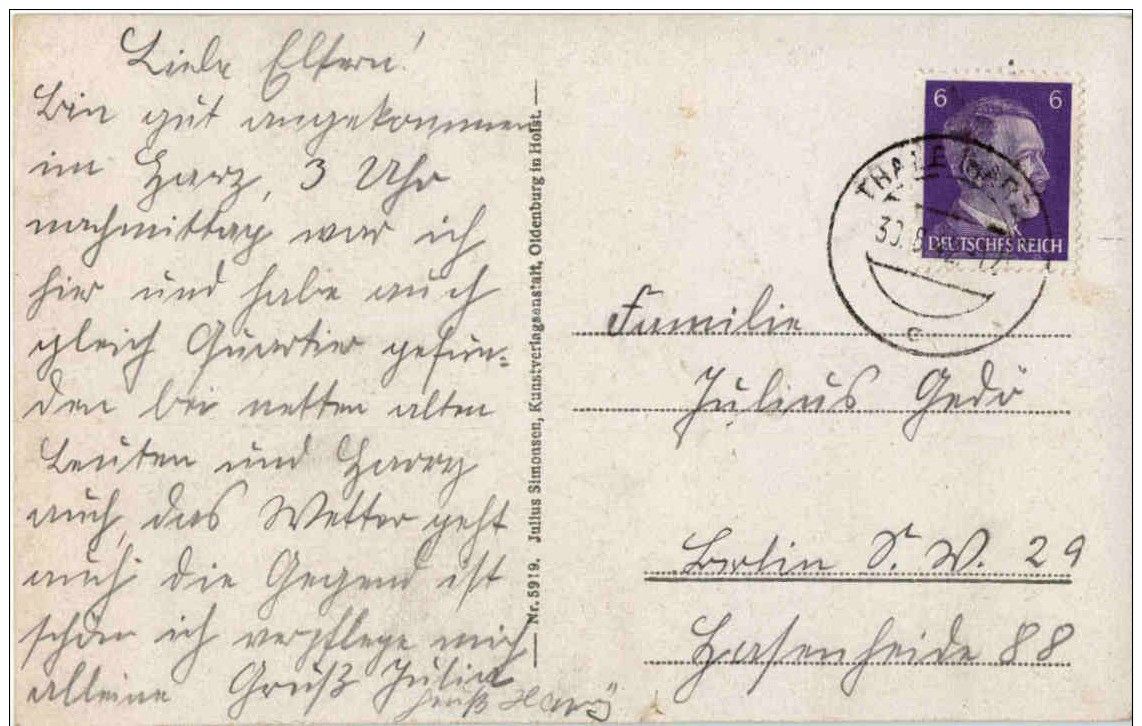 Liebe Eltern!
Bin gut angekommen
im Harz, 3 Uhr
nachmittag war ich
hier und habe auch
gleich Quartier gefun-
den bei netten alten
Leuten und Harry
auch, das Wetter geht
auch die Gegend ist
schön ich verpflege mich
alleine Gruß
Gruß
Nr. 5919. Julius Simonsen, Kunstverlagsanstalt, Oldenburg in Holst.
6 6
DEUTSCHES REICH
THALE (HARZ)
30.
c
Familie
Julius Gedö
Berlin S. W. 29
Hasenheide 88